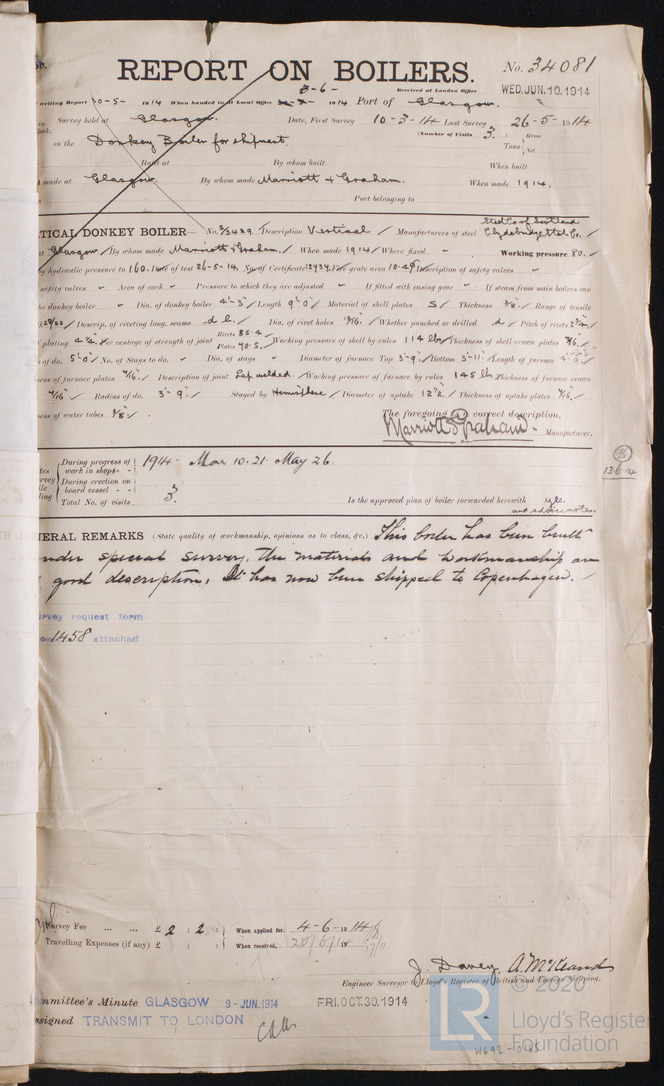 REPORT ON BOILERS.
No. 34081
Received at London Office
WED. JUN. 10. 1914
writing Report 30-5- 1914 When handed in at Local Office 3-6- 1914 Port of Glasgow.
Survey held at Glasgow. Date, First Survey 10-3-14 Last Survey 26-5-1914
(Number of Visits 3.)
on the Donkey Boiler for shipment.
Tons Gross Net
Built at By whom built When built
made at Glasgow. By whom made Marriott & Graham. When made 1914.
Port belonging to
TICAL DONKEY BOILER— No. Description Vertical / Manufacturers of steel Steel Co of Scotland Clydebridge Steel Co. /
at Glasgow / By whom made Marriott & Graham. / When made 1914 / Where fixed - Working pressure 80. /
by hydraulic pressure to 160. / Date of test 26-5-14. No. of Certificate / Fire grate area Description of safety valves "
safety valves " Area of each " Pressure to which they are adjusted " If fitted with easing gear " If steam from main boilers can
he donkey boiler " Dia. of donkey boiler 4'-3" / Length 9'.0" / Material of shell plates S / Thickness 3/8" / Range of tensile
Descrip. of riveting long. seams d l. / Dia. of rivet holes 13/16" / Whether punched or drilled d / Pitch of rivets
plating / Per centage of strength of joint Rivets 85.4 Plates 70.5. / Working pressure of shell by rules 114 lbs / Thickness of shell crown plates 9/16" /
of do. 5'.0" / No. of Stays to do. " Dia. of stays " Diameter of furnace Top 3'-9" / Bottom 3'-11" / Length of furnace
ness of furnace plates 7/16" / Description of joint Lap welded. / Working pressure of furnace by rules 145 lbs. / Thickness of furnace crown
7/16" / Radius of do. 3' 9". / Stayed by Hemisphere / Diameter of uptake 12 1/2" / Thickness of uptake plates 7/16" /
ness of water tubes 3/8" /
The foregoing is a correct description,
Marriott & Graham. Manufacturer.
During progress of work in shops - - 1914 - Mar 10. 21. May 26.
During erection on board vessel - -
Total No. of visits 3.
Is the approved plan of boiler forwarded herewith yes.
and advice notes.
13.6.14
NERAL REMARKS (State quality of workmanship, opinions as to class, &c.) This boiler has been built
under special survey, the materials and workmanship are
good description. It has now been shipped to Copenhagen. /
urvey request form
1458 attached
Survey Fee ... ... £ 2 : 2 : When applied for, 4-6-1914
Travelling Expenses (if any) £ : : When received,
J. Davey. A. McKeand
Engineer Surveyor to Lloyd's Register of British and Foreign Shipping.
ommittee's Minute GLASGOW 9-JUN.1914 FRI. OCT. 30. 1914
ssigned TRANSMIT TO LONDON
© 2020
LR
Lloyd's Register
Foundation
W692-0165